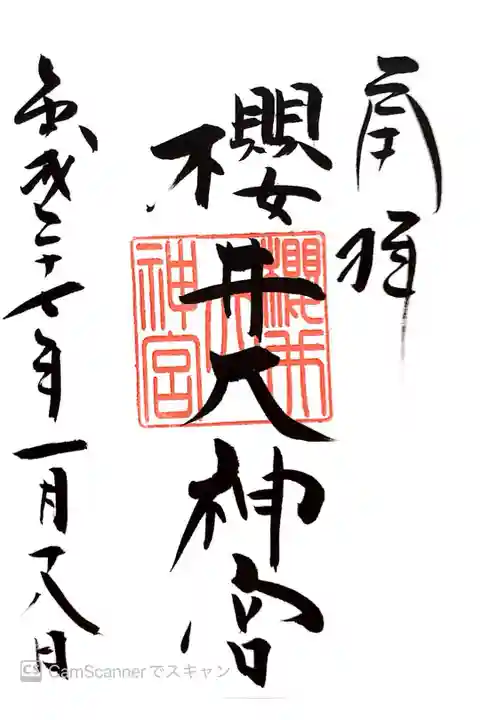 奉拝
櫻井大神宮
櫻井大神宮
平成二十七年一月六日
CamScannerでスキャン